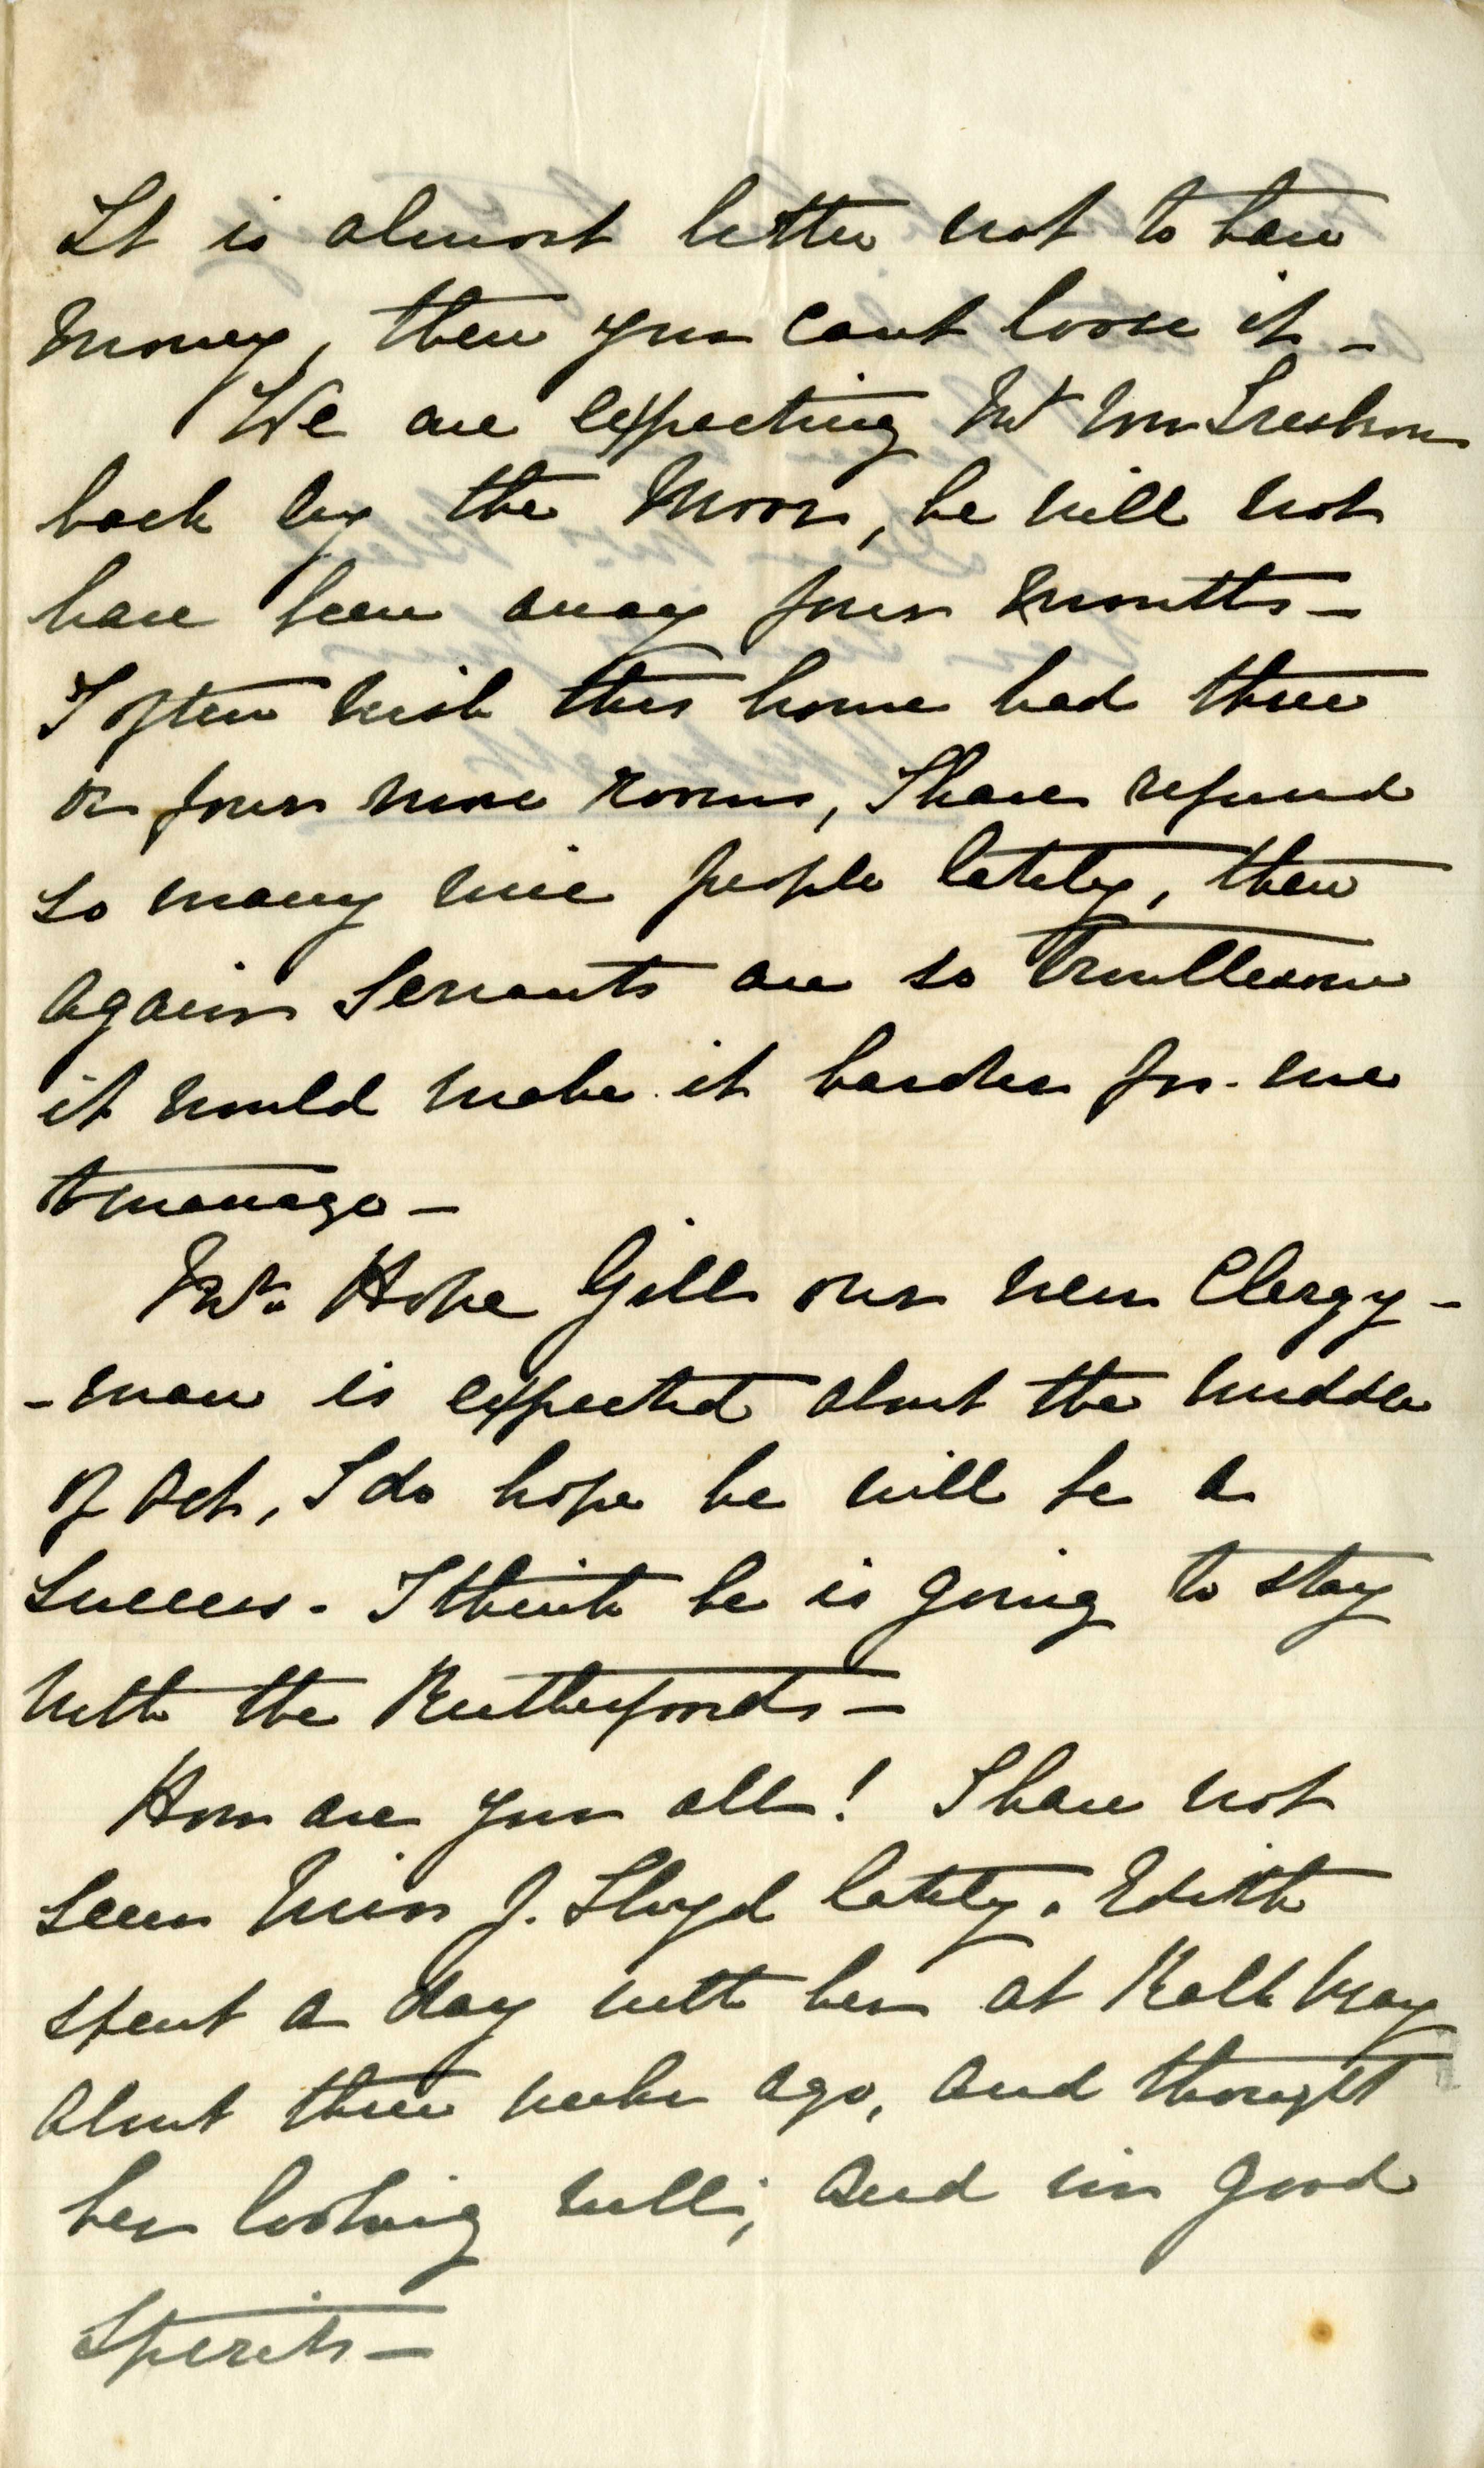 It is almost better not to have
money, then you cant loose it –
We are expecting Mr
back by the Moor, he will not
have been away four months –
I often wish this house had three
or four more rooms, I have refused
so many nice people lately, then
again servants are so troublesome
it would make it harder for me
to manage –
Mr. Hope Gill our new Clergy-
-man is expected about the middle
of Oct, I do hope he will be a
success. I think he is going to stay
with the Rutherfords –
How are you all! I have not
seen Miss J. Lloyd lately. Edith
spent a day with her at Kalk Bay
about three weeks ago, and thought
her looking well; and in good
Spirits –